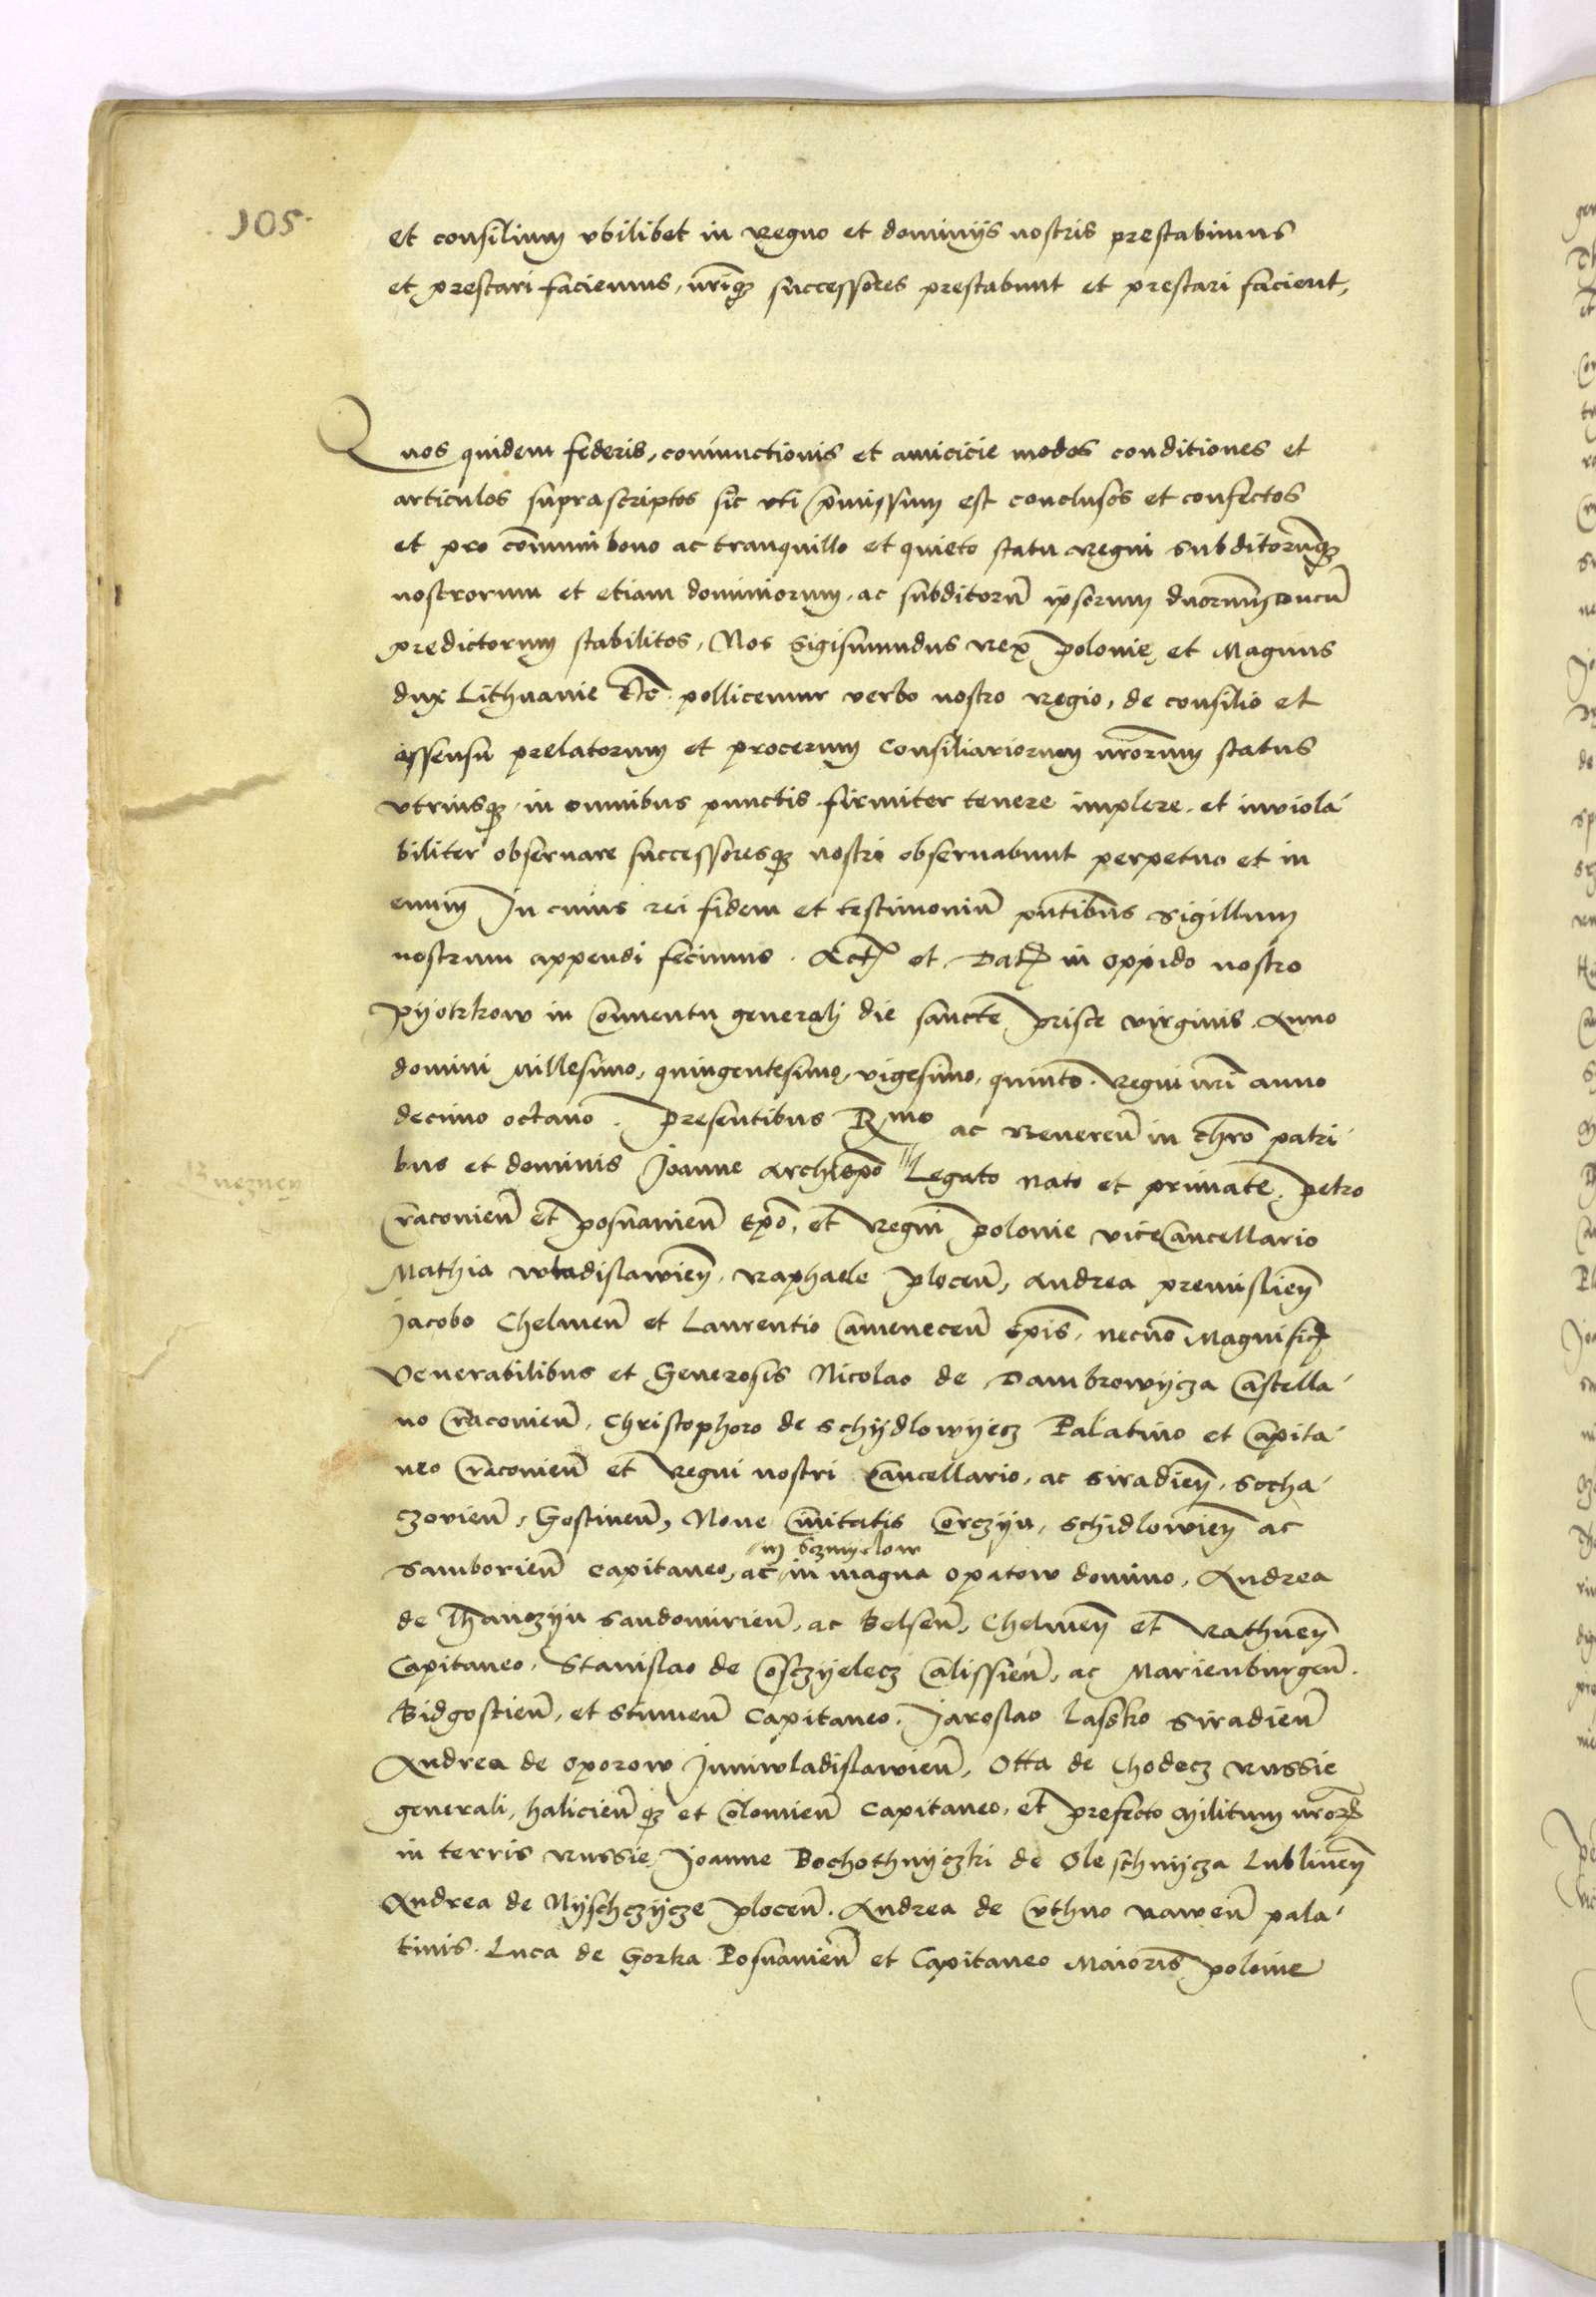 105.
et consilium vbilibet in Regno et dominijs nostris prestabimus
et prestari faciemus, nriq3 successores prestabunt et prestari facient,
Quos quidem federis, coniunctionis et amicicie modos conditiones et
articulos suprascriptos sic vti pmissum est conclusos et confectos
et pro cõmuni bono ac tranquillo et quieto statu Regni subditorũq3
nostrorum et etiam dominiorum, ac subditorũ ipsorum ducum
predictorum stabilitos, Nos Sigismundus Rex polonie et Magnus
dux Lithuanie etc. pollicemur verbo nostro Regio, de consilio et
assensu prelatorum et procerum Consiliariorum nrorum status
vtriusq3 in omnibus punctis firmiter tenere implere et inviola-
biliter obseruare successoresq3 nostri obseruabunt perpetuo et in
euum In cuius rei fidem et testimoniũ pñtibus sigillum
nostrum appendi fecimus. Act et Dat in oppido nostro
Pyotrkow in Conuentu generali die sancte Prisce virginis Anno
domini Millesimo, quingentesimo, vigesimo, quinto. Regni nri anno
decimo octauo. Presentibus Rmo ac Reueren in chro patri-
Gneznen
bus et dominis Joanne Archiepo Legato nato et primate. Petro
Cracouien et Posnanien Epo, et Regni Polonie vicecancellario
Mathia Wladislawien, Raphaele Plocen, Andrea premislien
Jacobo Chelmen et Laurentio Camenecen Epis, necno Magnificis
Venerabilibus et Generosis Nicolao de Dambrowycza Castella-
no Cracouien, Christophoro de Schydlowyecz Palatino et Capita-
neo Cracouien et Regni nostri Cancellario, ac Siradien, Socha-
czouien, Gostinen, Noue Ciuitatis Corczyn, Schidlowien ac
in Czmyelow
Samborien Capitaneo, ac in magna Opatow domino, Andrea
de Thanczyn Sandomirien, ac Belsen, Chelmen et Rathnen
Capitaneo, Stanislao de Cosczyelecz Calissien, ac Marienburgen.
Bidgostien, et Capitaneo. Jaroslao Lassko Siradien
Andrea de Oporow Juniwladislawien, Otta de Chodecz Russie
generali, halicienq3 et Colomien Capitaneo, et prefecto Militum nror
in terris Russie, Joanne Bochothnyczki de Oleschnycza Lublinen
Andrea de Nyschczycze Plocen. Andrea de Cuthno Rawen pala-
tinis. Luca de Gorka Posnanien et Capitaneo Maioris Polonie